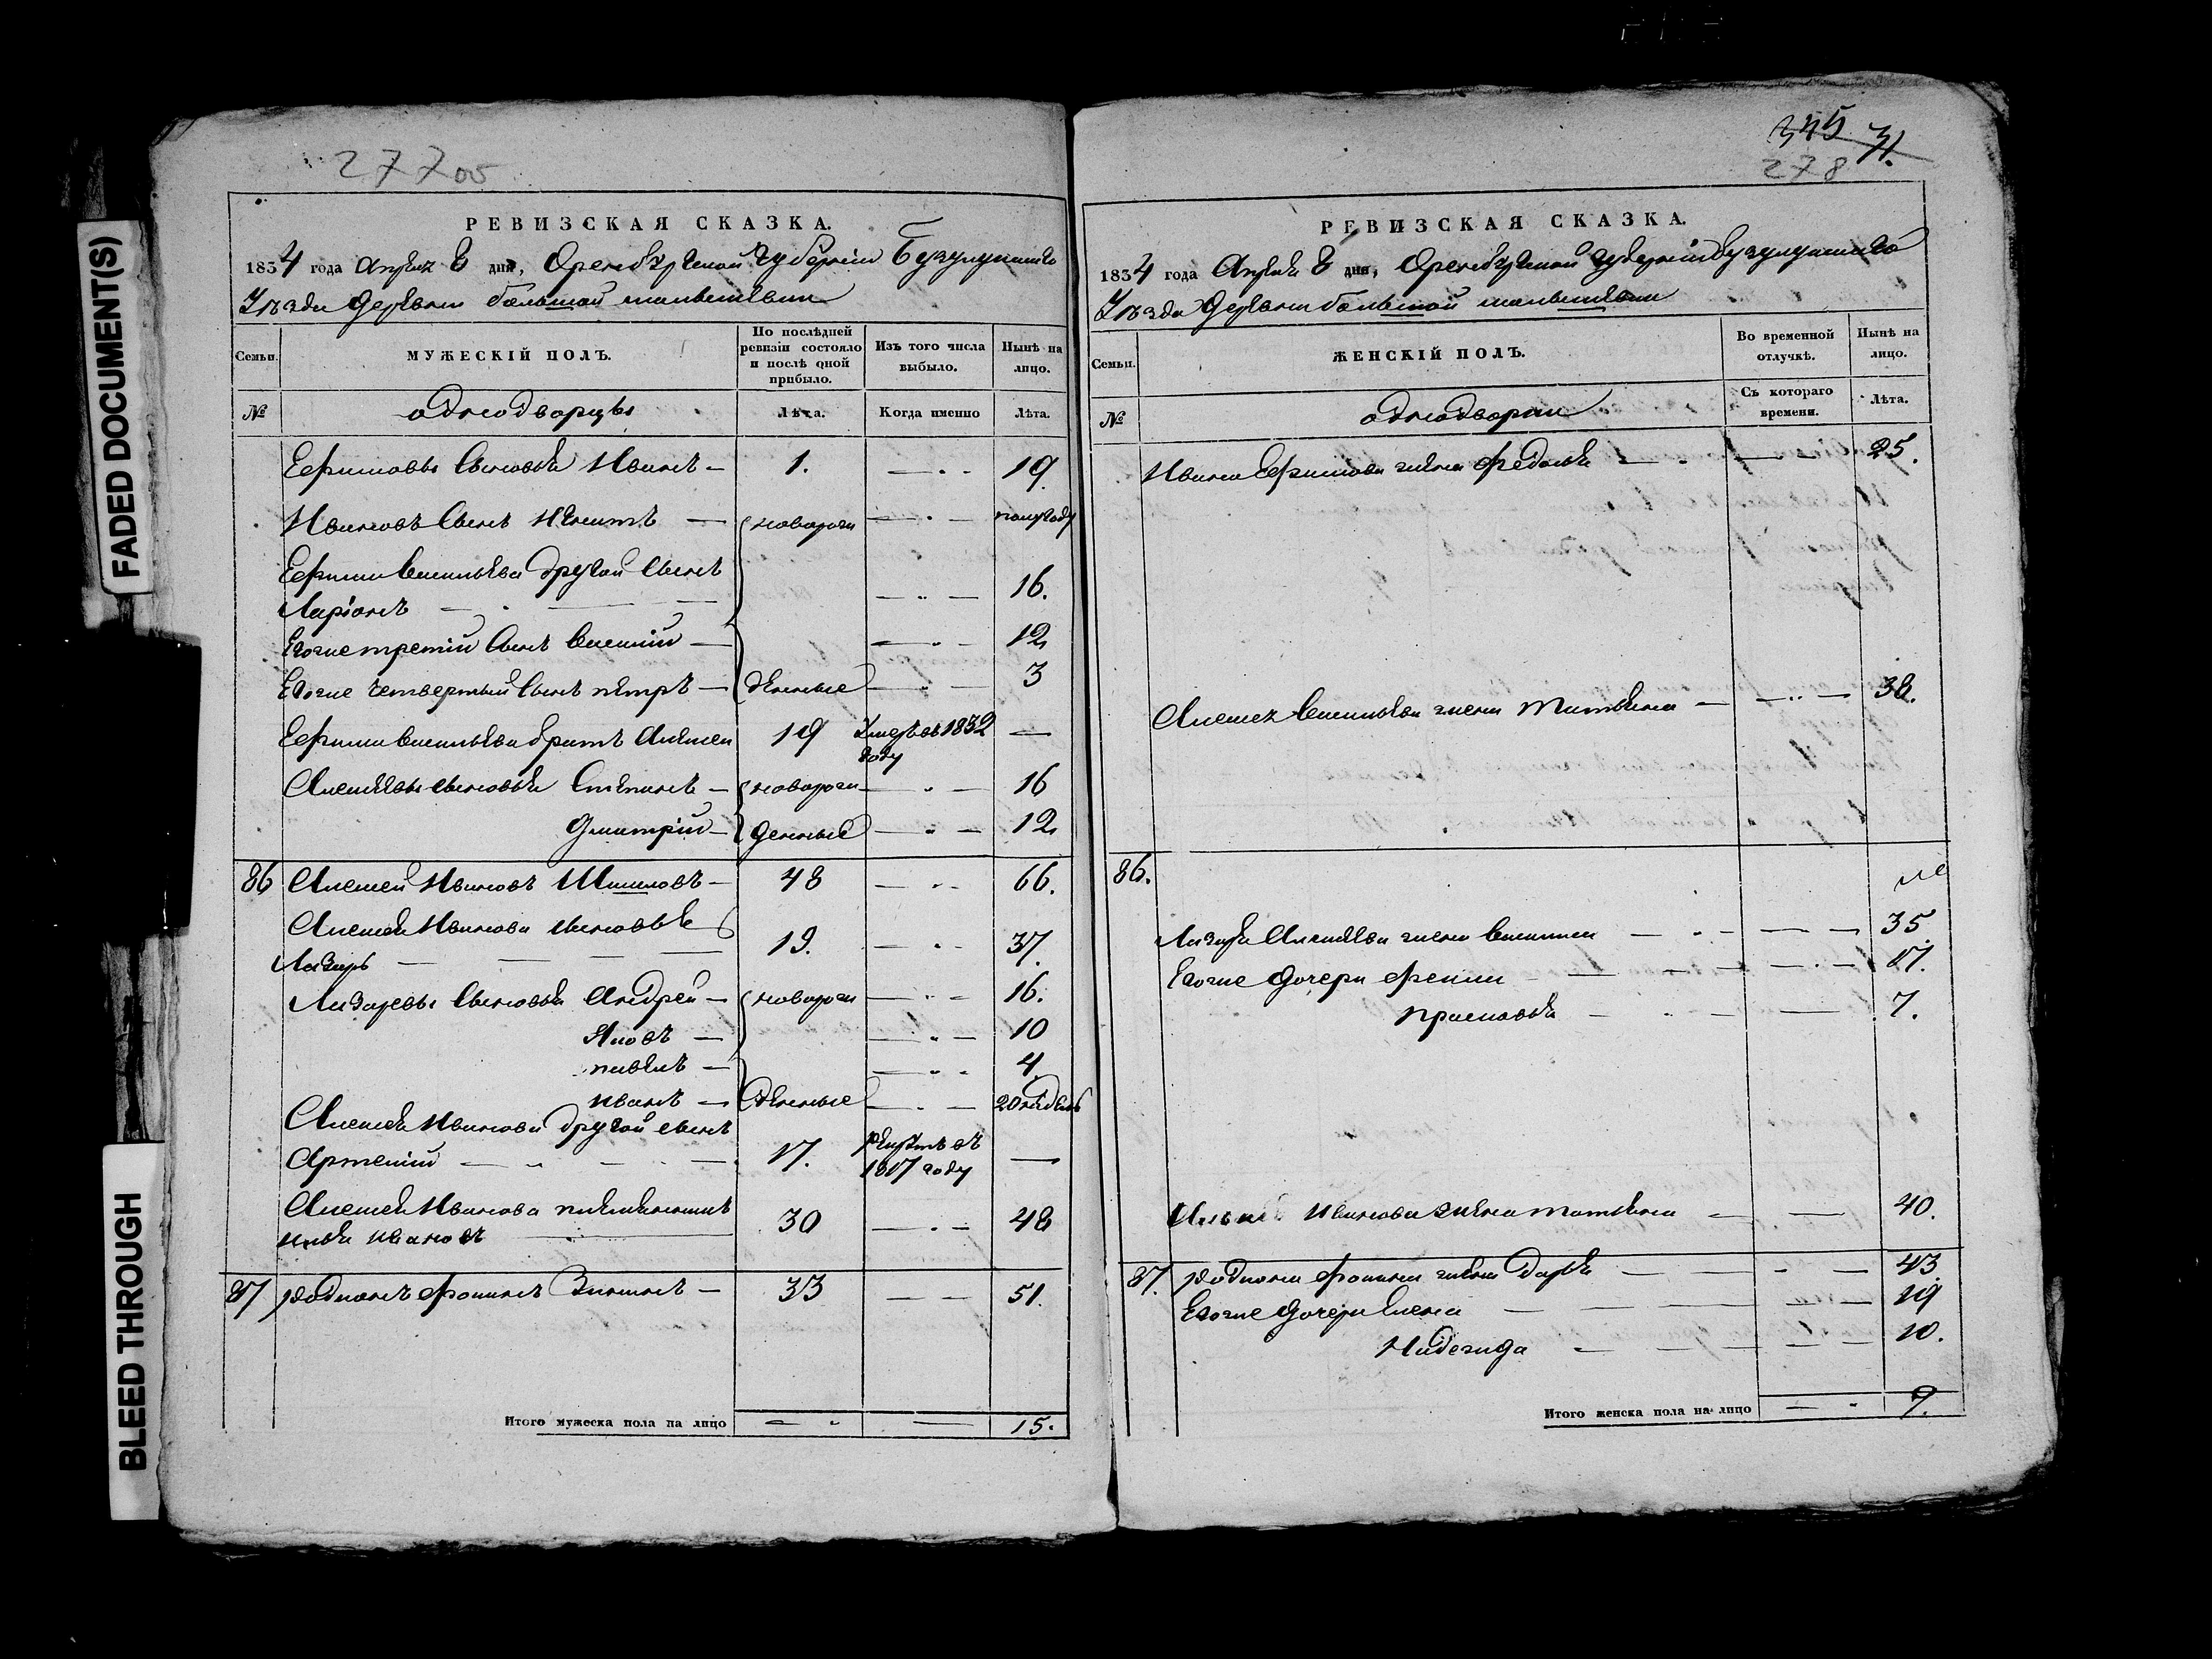 FADED DOCUMENT(S)
BLEED THROUGH
277 об
РЕВИЗСКАЯ СКАЗКА.
1834 года Апреля 8 дня, Оренбургской губернии Бузулукского
Уѣзда Деревни большой
Семьи.
МУЖЕСКІЙ ПОЛЪ.
По послѣдней ревизіи состояло и послѣ оной прибыло.
Изъ того числа выбыло.
Нынѣ на лицо.
№
однодворцы
Лѣта.
Когда именно
Лѣта.
Ефимовы сыновья Иванъ — 1. — 19
Ивановъ сынъ Никита — новорож — полугоду
Ефима Васильева другой сынъ
Ларіонъ — 16.
Егоже третій сынъ Василій — 12
Егоже четвертый сынъ петръ — денные — 3
Ефима Васильева братъ Алексей 19 Умеръ въ 1832 году —
Алексеевы сыновья Степанъ — новорож — 16
Дмитрій — денные — 12
86 Алексей Ивановъ Шишловъ — 48 — 66.
Алексея Иванова сыновья
Лазарь — 19. — 37.
Лазаревы сыновья Андрей — новорож — 16.
Яковъ — 10
павелъ — 4
иванъ — денные — 20 недель
Алексея Иванова другой сынъ
Артемій — 17. рекрутъ въ 1817 году —
Алексея Иванова племянникъ
илья ивановъ 30 — 48
87 родионъ Фоминъ Зининъ — 33 — 51.
Итого мужеска пола на лицо — 15.
345 31.
278
РЕВИЗСКАЯ СКАЗКА.
1834 года Апреля 8 дня, Оренбургской губернии бузулукского
Уѣзда Деревни большой
Семьи.
ЖЕНСКІЙ ПОЛЪ.
Во временной отлучкѣ.
Нынѣ на лицо.
№
однодворки
Съ котораго времени.
Лѣта.
Ивана Ефимова жена Федосья — 25.
Алексея Васильева жена Татьяна — 38.
86.
Лазаря Алексеева жена Василиса — 35.
Егоже дочери — 17.
прасковья — 7.
Ильи Иванова жена татьяна — 40.
87. родиона Фомина жена Дарья — 43
Егоже дочери Елена — 19
Надежда — 10.
Итого женска пола на лицо — 9.